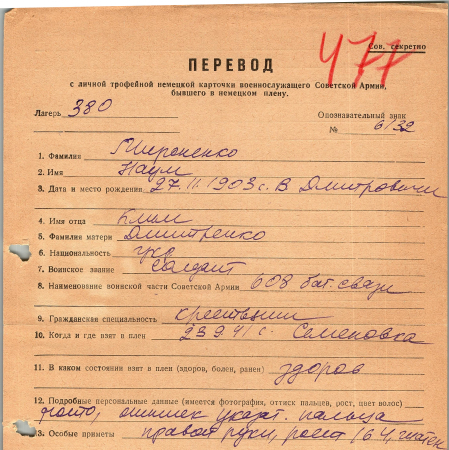 477
Сов. секретно
ПЕРЕВОД
с личной трофейной немецкой карточки военнослужащего Советской Армии,
бывшего в немецком плену.
Лагерь 380
Опознавательный знак
№ 6132
1. Фамилия
2. Имя Наум
3. Дата и место рождения 27.11.1903 с. В Дмитровичи
4. Имя отца Клим
5. Фамилия матери Дмитренко
6. Национальность укр
7. Воинское звание солдат
8. Наименование воинской части Советской Армии 608 бат. связи
9. Гражданская специальность
10. Когда и где взят в плен 23 9 41 с. Семеновка
11. В каком состоянии взят в плен (здоров, болен, ранен) здоров
12. Подробные персональные данные (имеется фотография, оттиск пальцев, рост, цвет волос)
фото, оттиск указ. пальца
13. Особые приметы правой руки, рост 164, шатен